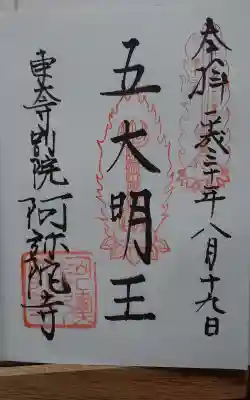 奉拝 平成三十年八月十九日
五大明王
東大寺別院阿弥陀寺